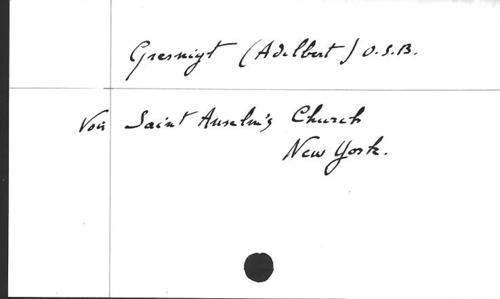 Gresnigt (Adelbert) O.S.B.
Voir Saint Anselm's Church
New York.